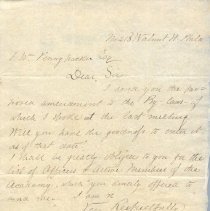 No 218 Walnut St. Phila
J. Wm Pennypacker Esq
Dear Sir
I send you the pro-
posed amendment to the By-laws of
which I spoke at the last meeting.
Will you have the goodness to enter it
as of that date?
I shall be greatly obliged to you for the
list of Officers & Active Members of the
Academy, which you kindly offered to
send me.
I am
Respectfully